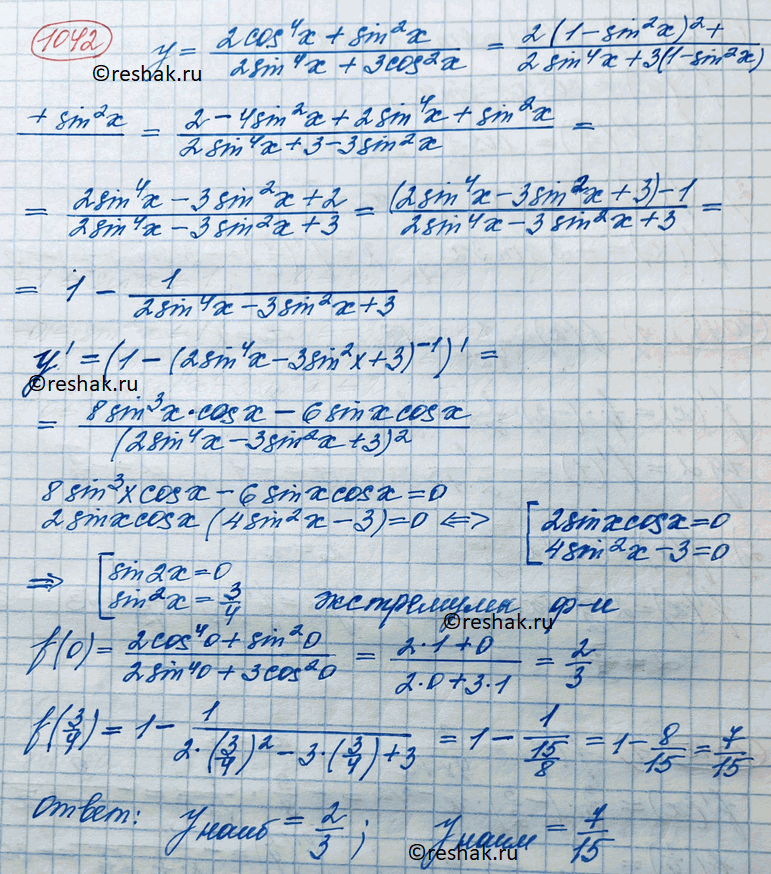 1042 y = (2cos⁴x + sin²x)/(2sin⁴x + 3cos²x) = (2(1-sin²x)² +)/(2sin⁴x + 3(1-sin²x))
©reshak.ru
(+ sin²x)/ = (2 - 4sin²x + 2sin⁴x + sin²x)/(2sin⁴x + 3 - 3sin²x) =
= (2sin⁴x - 3sin²x + 2)/(2sin⁴x - 3sin²x + 3) = ((2sin⁴x - 3sin²x + 3) - 1)/(2sin⁴x - 3sin²x + 3) =
= 1 - 1/(2sin⁴x - 3sin²x + 3)
y' = (1 - (2sin⁴x - 3sin²x + 3)⁻¹)' =
©reshak.ru
= (8sin³x·cosx - 6sinxcosx)/(2sin⁴x - 3sin²x + 3)²
8sin³xcosx - 6sinxcosx = 0
2sinxcosx (4sin²x - 3) = 0 <=> [2sinxcosx = 0
4sin²x - 3 = 0
=> [sin2x = 0
sin²x = 3/4 экстремумы ф-и
©reshak.ru
f(0) = (2cos⁴0 + sin²0)/(2sin⁴0 + 3cos²0) = (2·1 + 0)/(2·0 + 3·1) = 2/3
f(3/4) = 1 - 1/(2·(3/4)² - 3·(3/4) + 3) = 1 - 1/(15/8) = 1 - 8/15 = 7/15
ответ: yнаиб = 2/3; yнаим = 7/15
©reshak.ru